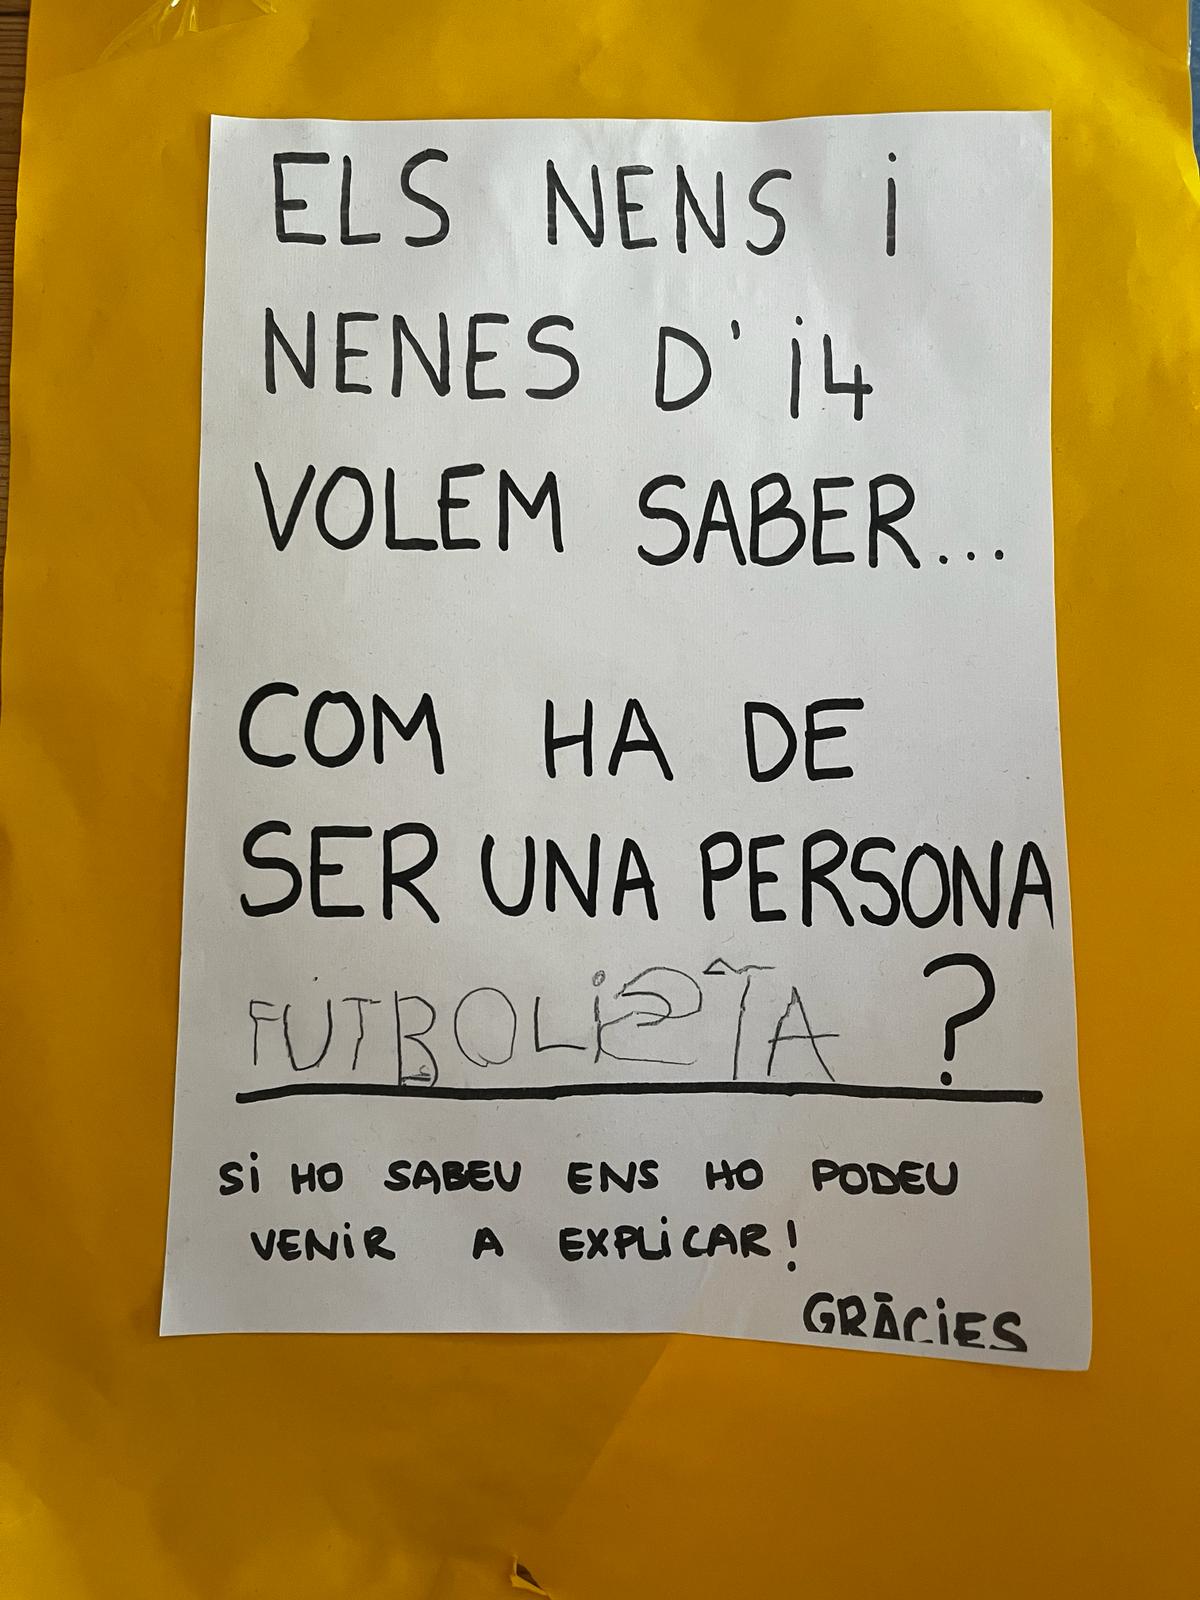 ELS NENS i
NENES D'i4
VOLEM SABER...
COM HA DE
SER UNA PERSONA
FUTBOLISTA ?
Si HO SABEU ENS HO PODEU
VENiR A EXPLiCAR!
GRÀCiES